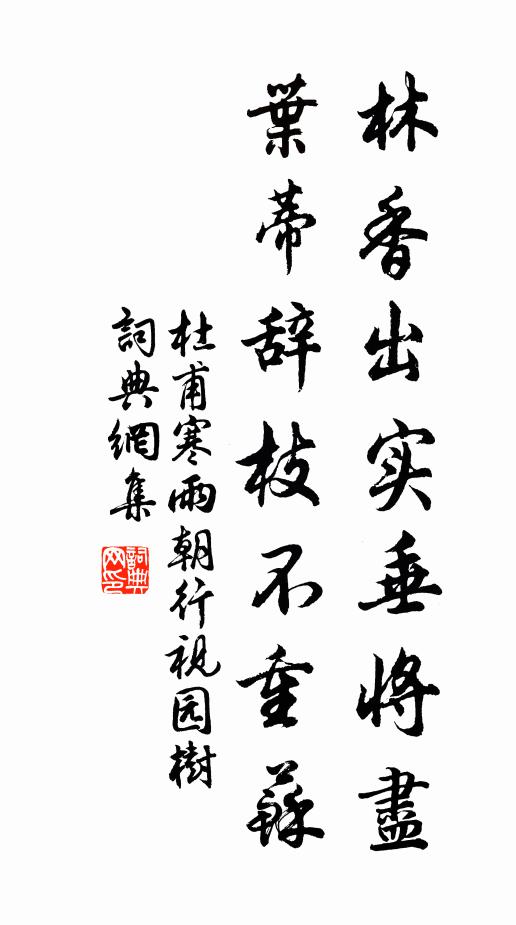 林香出实垂将盡
葉蒂辞枝不重蘇
杜甫寒雨朝行视园樹
詞典網集
詞典网印